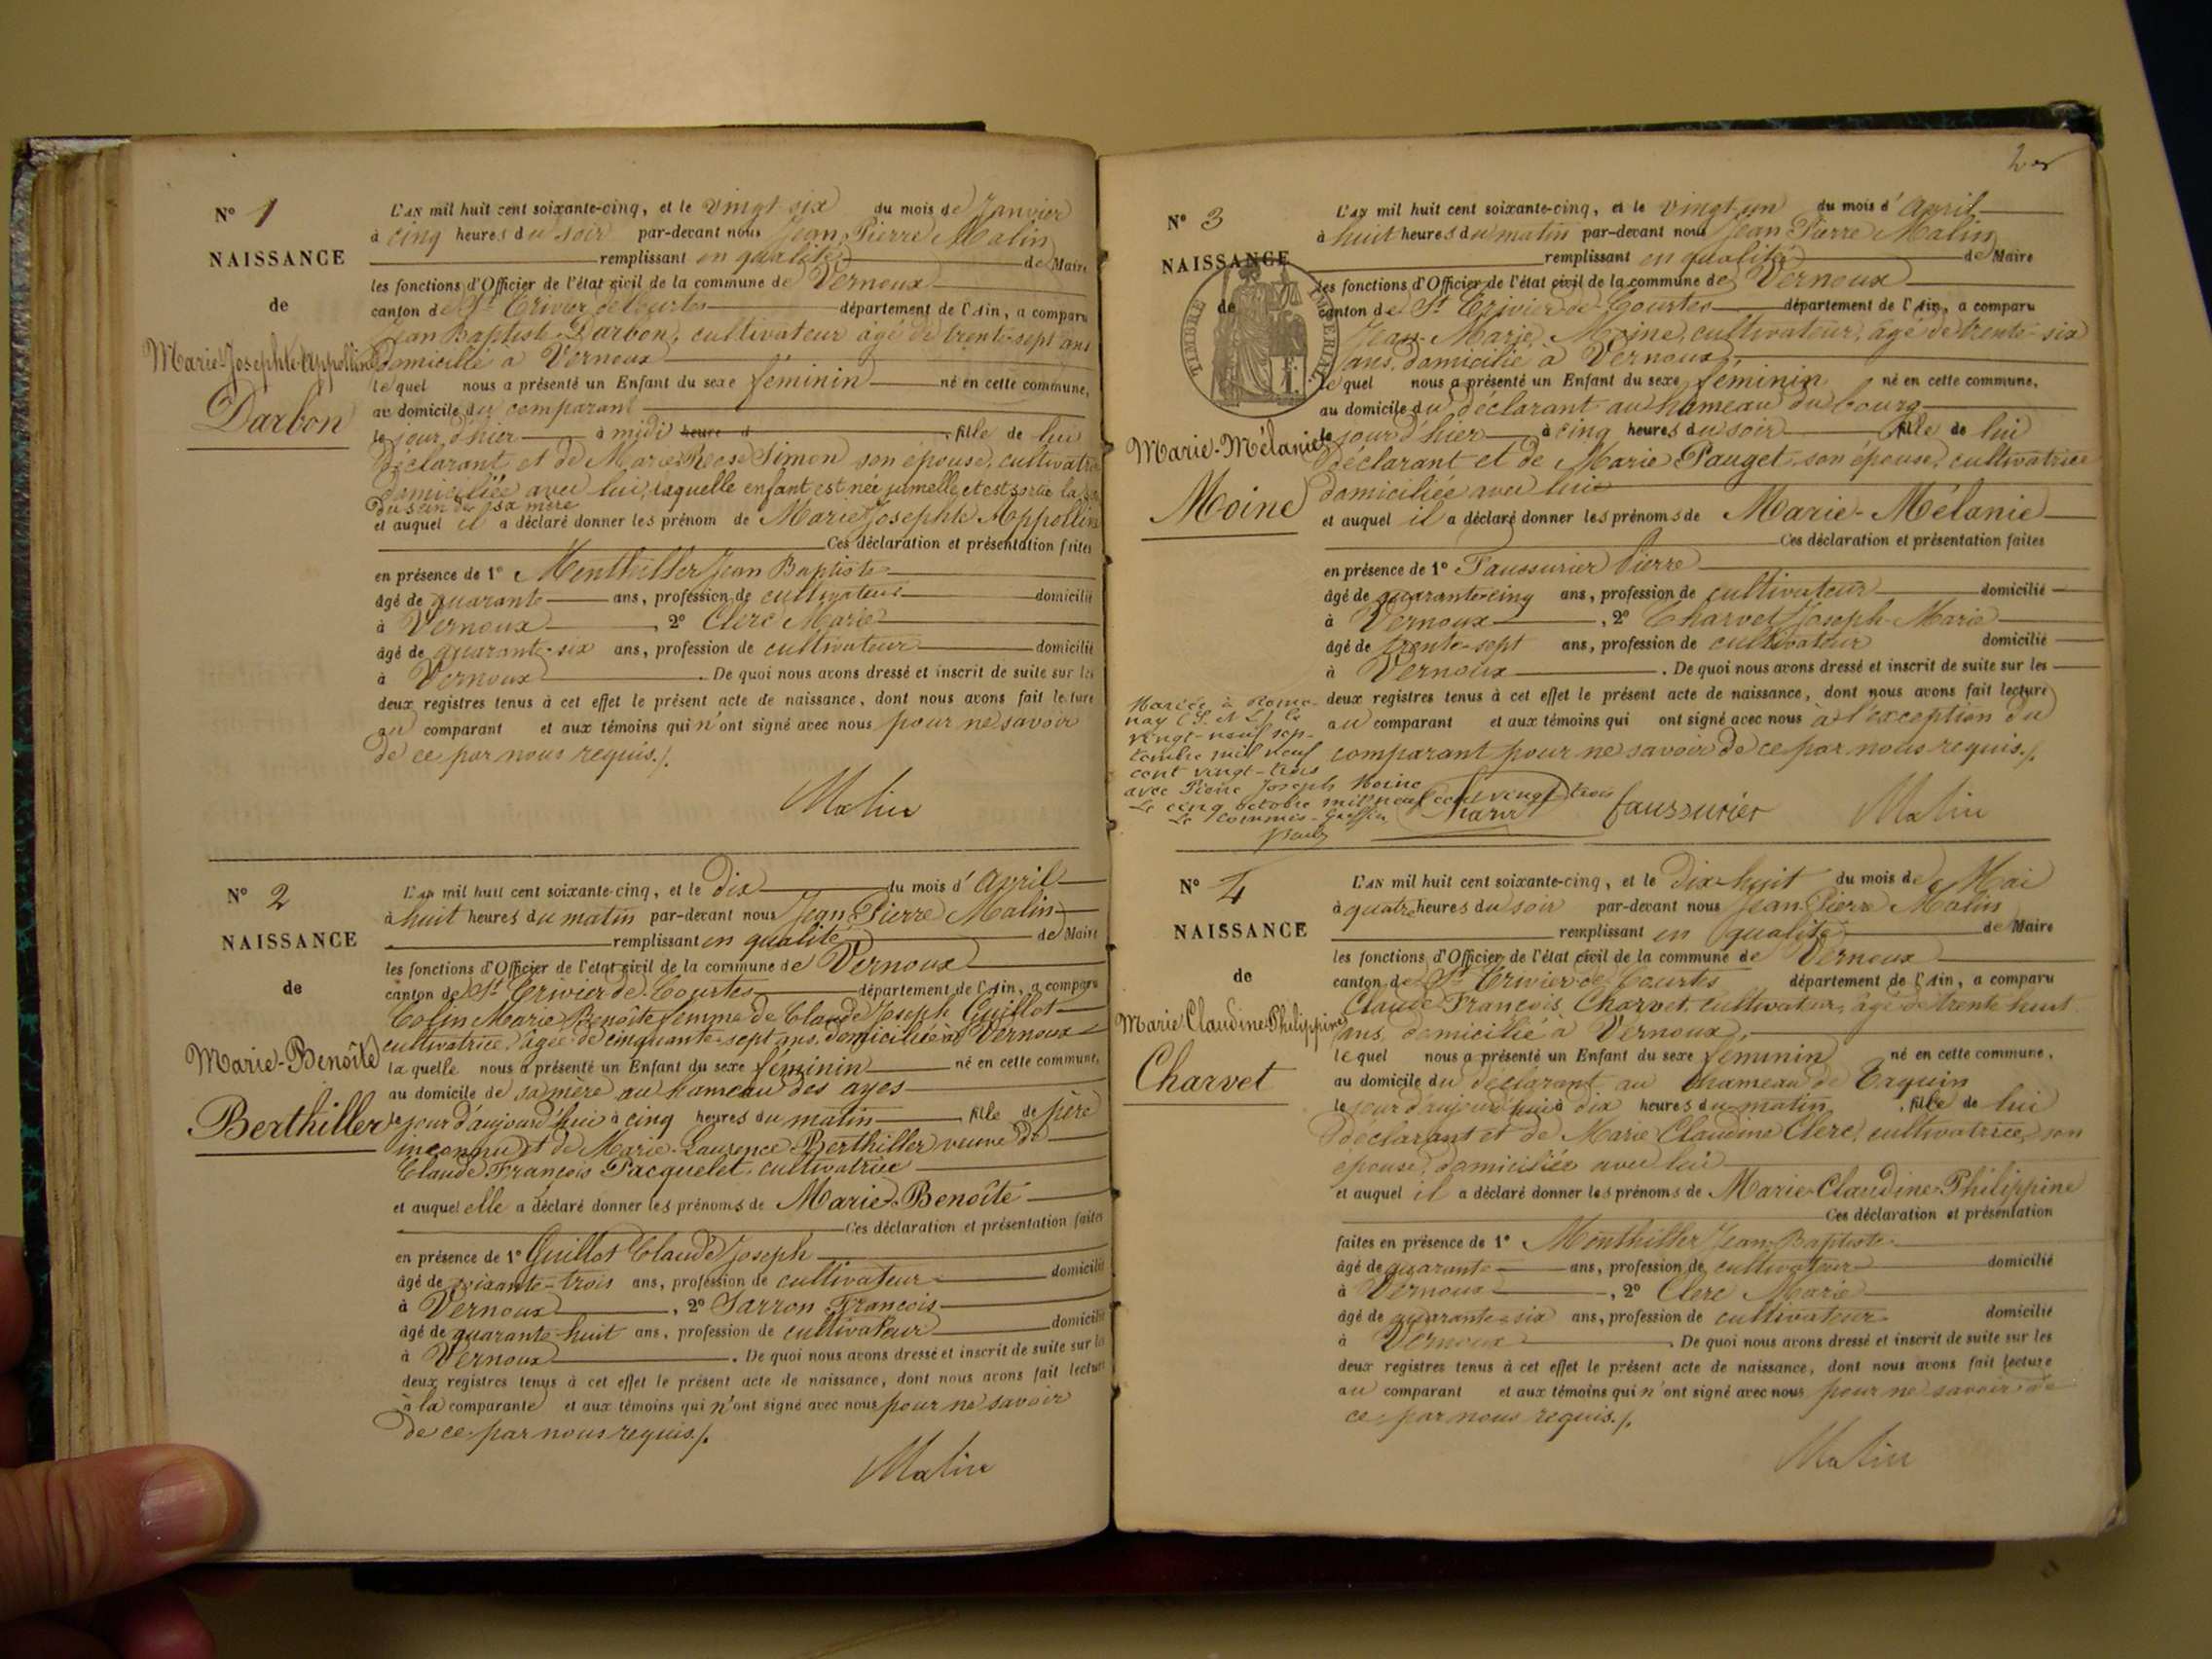 N° 1
NAISSANCE
de
Marie-Josephte-Appolline
Darbon
L'AN mil huit cent soixante-cinq, et le vingt six du mois de Janvier
à cinq heures du soir par-devant nous Jean Pierre Malin
remplissant en qualité de Maire
les fonctions d'Officier de l'état civil de la commune de Vernoux
canton de St Trivier de Courtes département de l'Ain, a comparu
Jean Baptist Darbon, cultivateur âgé de trente-sept ans
domicilié à Vernoux
lequel nous a présenté un Enfant du sexe féminin né en cette commune,
au domicile du comparant
le jour d'hier à midi heure d fille de lui
déclarant et de Marie Simon son épouse, cultivatrice
domiciliée avec lui, laquelle enfant est née jumelle, et est sortie la
du sein de sa mère
et auquel il a déclaré donner les prénom de Marie Josephte Appollin
Ces déclaration et présentation faites
en présence de 1° Monthiller Jean Baptiste
âgé de quarante ans, profession de cultivateur domicilié
à Vernoux, 2° Clerc Marie
âgé de quarante-six ans, profession de cultivateur domicilié
à Vernoux. De quoi nous avons dressé et inscrit de suite sur les
deux registres tenus à cet effet le présent acte de naissance, dont nous avons fait lecture
au comparant et aux témoins qui n'ont signé avec nous pour ne savoir
de ce par nous requis./.
Malin
N° 2
NAISSANCE
de
Marie-Benoîte
Berthiller
L'AN mil huit cent soixante-cinq, et le dix du mois d'avril
à huit heures du matin par-devant nous Jean Pierre Malin
remplissant en qualité de Maire
les fonctions d'Officier de l'état civil de la commune de Vernoux
canton de St Trivier de Courtes département de l'Ain, a comparu
Colin Marie Benoîte femme de Claude Joseph Guillot
cultivatrice, âgée de cinquante-sept ans, domiciliée à Vernoux
laquelle nous a présenté un Enfant du sexe féminin né en cette commune,
au domicile de sa mère au hameau des ayes
le jour d'aujourd'hui à cinq heures du matin fille de père
inconnu et de Marie-Laurence Berthiller veuve de
Claude François Pacquelet, cultivatrice
et auquel elle a déclaré donner les prénoms de Marie-Benoîte
Ces déclaration et présentation faites
en présence de 1° Guillot Claude Joseph
âgé de soixante-trois ans, profession de cultivateur domicilié
à Vernoux, 2° Sarron François
âgé de quarante-huit ans, profession de cultivateur domicilié
à Vernoux. De quoi nous avons dressé et inscrit de suite sur les
deux registres tenus à cet effet le présent acte de naissance, dont nous avons fait lecture
à la comparante et aux témoins qui n'ont signé avec nous pour ne savoir
de ce par nous requis./.
Malin
2
N° 3
NAISSANCE
de
TIMBRE IMPERIAL
Marie-Mélanie
Moine
L'AN mil huit cent soixante-cinq, et le vingt-un du mois d'avril
à huit heures du matin par-devant nous Jean Pierre Malin
remplissant en qualité de Maire
les fonctions d'Officier de l'état civil de la commune de Vernoux
canton de St Trivier de Courtes département de l'Ain, a comparu
Jean-Marie Moine, cultivateur, âgé de trente-six
ans, domicilié à Vernoux,
lequel nous a présenté un Enfant du sexe féminin né en cette commune,
au domicile du déclarant au hameau du bourg
le jour d'hier à cinq heures du soir fille de lui
déclarant et de Marie Pauget, son épouse, cultivatrice
domiciliée avec lui
et auquel il a déclaré donner les prénoms de Marie-Mélanie
Ces déclaration et présentation faites
en présence de 1° Faussurier Pierre
âgé de quarante-cinq ans, profession de cultivateur domicilié
à Vernoux, 2° Charvet Joseph-Marie
âgé de trente-sept ans, profession de cultivateur domicilié
à Vernoux. De quoi nous avons dressé et inscrit de suite sur les
deux registres tenus à cet effet le présent acte de naissance, dont nous avons fait lecture
au comparant et aux témoins qui ont signé avec nous à l'exception du
comparant pour ne savoir de ce par nous requis./.
Mariée à Rome-
nay (S. et L.) le
vingt-neuf sep-
tembre mil neuf
cent vingt-trois
avec Pierre Joseph Moine
Le cinq octobre mil neuf cent vingt-trois
Le Commis-Greffier
Charvet faussurier Malin
N° 4
NAISSANCE
de
Marie Claudine-Philippine
Charvet
L'AN mil huit cent soixante-cinq, et le dix-huit du mois de Mai
à quatre heures du soir par-devant nous Jean Pierre Malin
remplissant en qualité de Maire
les fonctions d'Officier de l'état civil de la commune de Vernoux
canton de St Trivier de Courtes département de l'Ain, a comparu
Claude François Charvet, cultivateur, âgé de trente huit
ans, domicilié à Vernoux,
lequel nous a présenté un Enfant du sexe féminin né en cette commune,
au domicile du déclarant au hameau de Taquin
le jour d'aujourd'hui à dix heures du matin, fille de lui
déclarant et de Marie Claudine Clerc, cultivatrice, son
épouse, domiciliée avec lui
et auquel il a déclaré donner les prénoms de Marie-Claudine-Philippine
Ces déclaration et présentation
faites en présence de 1° Monthiller Jean-Baptiste
âgé de quarante ans, profession de cultivateur domicilié
à Vernoux, 2° Clerc Marie
âgé de quarante-six ans, profession de cultivateur domicilié
à Vernoux. De quoi nous avons dressé et inscrit de suite sur les
deux registres tenus à cet effet le présent acte de naissance, dont nous avons fait lecture
au comparant et aux témoins qui n'ont signé avec nous pour ne savoir de
ce par nous requis./.
Malin